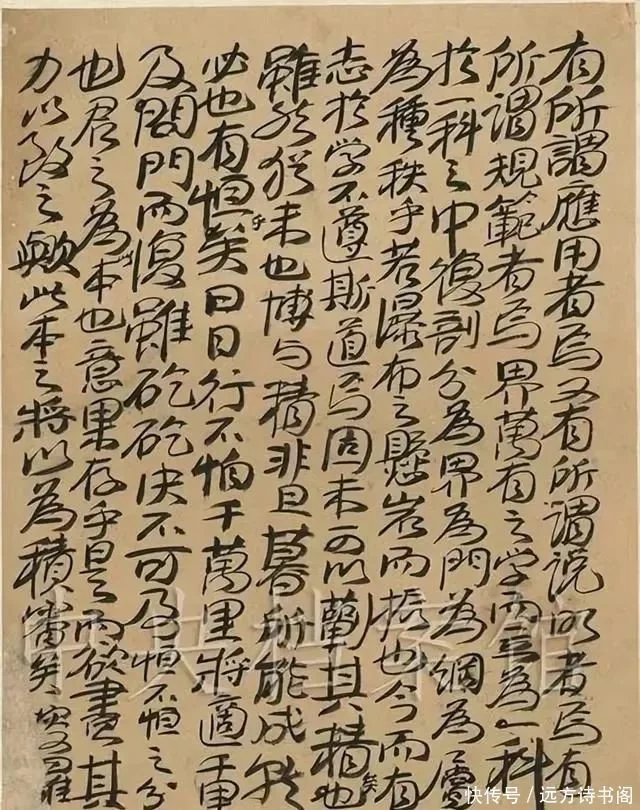 有所謂應用者焉又有所謂説明者焉有
所謂規範者焉界萬有之學而立為一科
於一科之中復剖分為界為門為綱為屬
為種秩乎若瀑布之懸岩而振也今而有
志於学不遵斯道焉固未可以蘄其精也矣
雖然猶未也博与精非旦暮所能成就
必也有恒矣乎日日行不怕千萬里將適千里
及閨門而復雖矻矻決不可及恒不恒之分
也君之為本也意果存乎是而欲盡其
力以致之歟此本之將以為積矣
中央档案馆
快传号/远方诗书阁